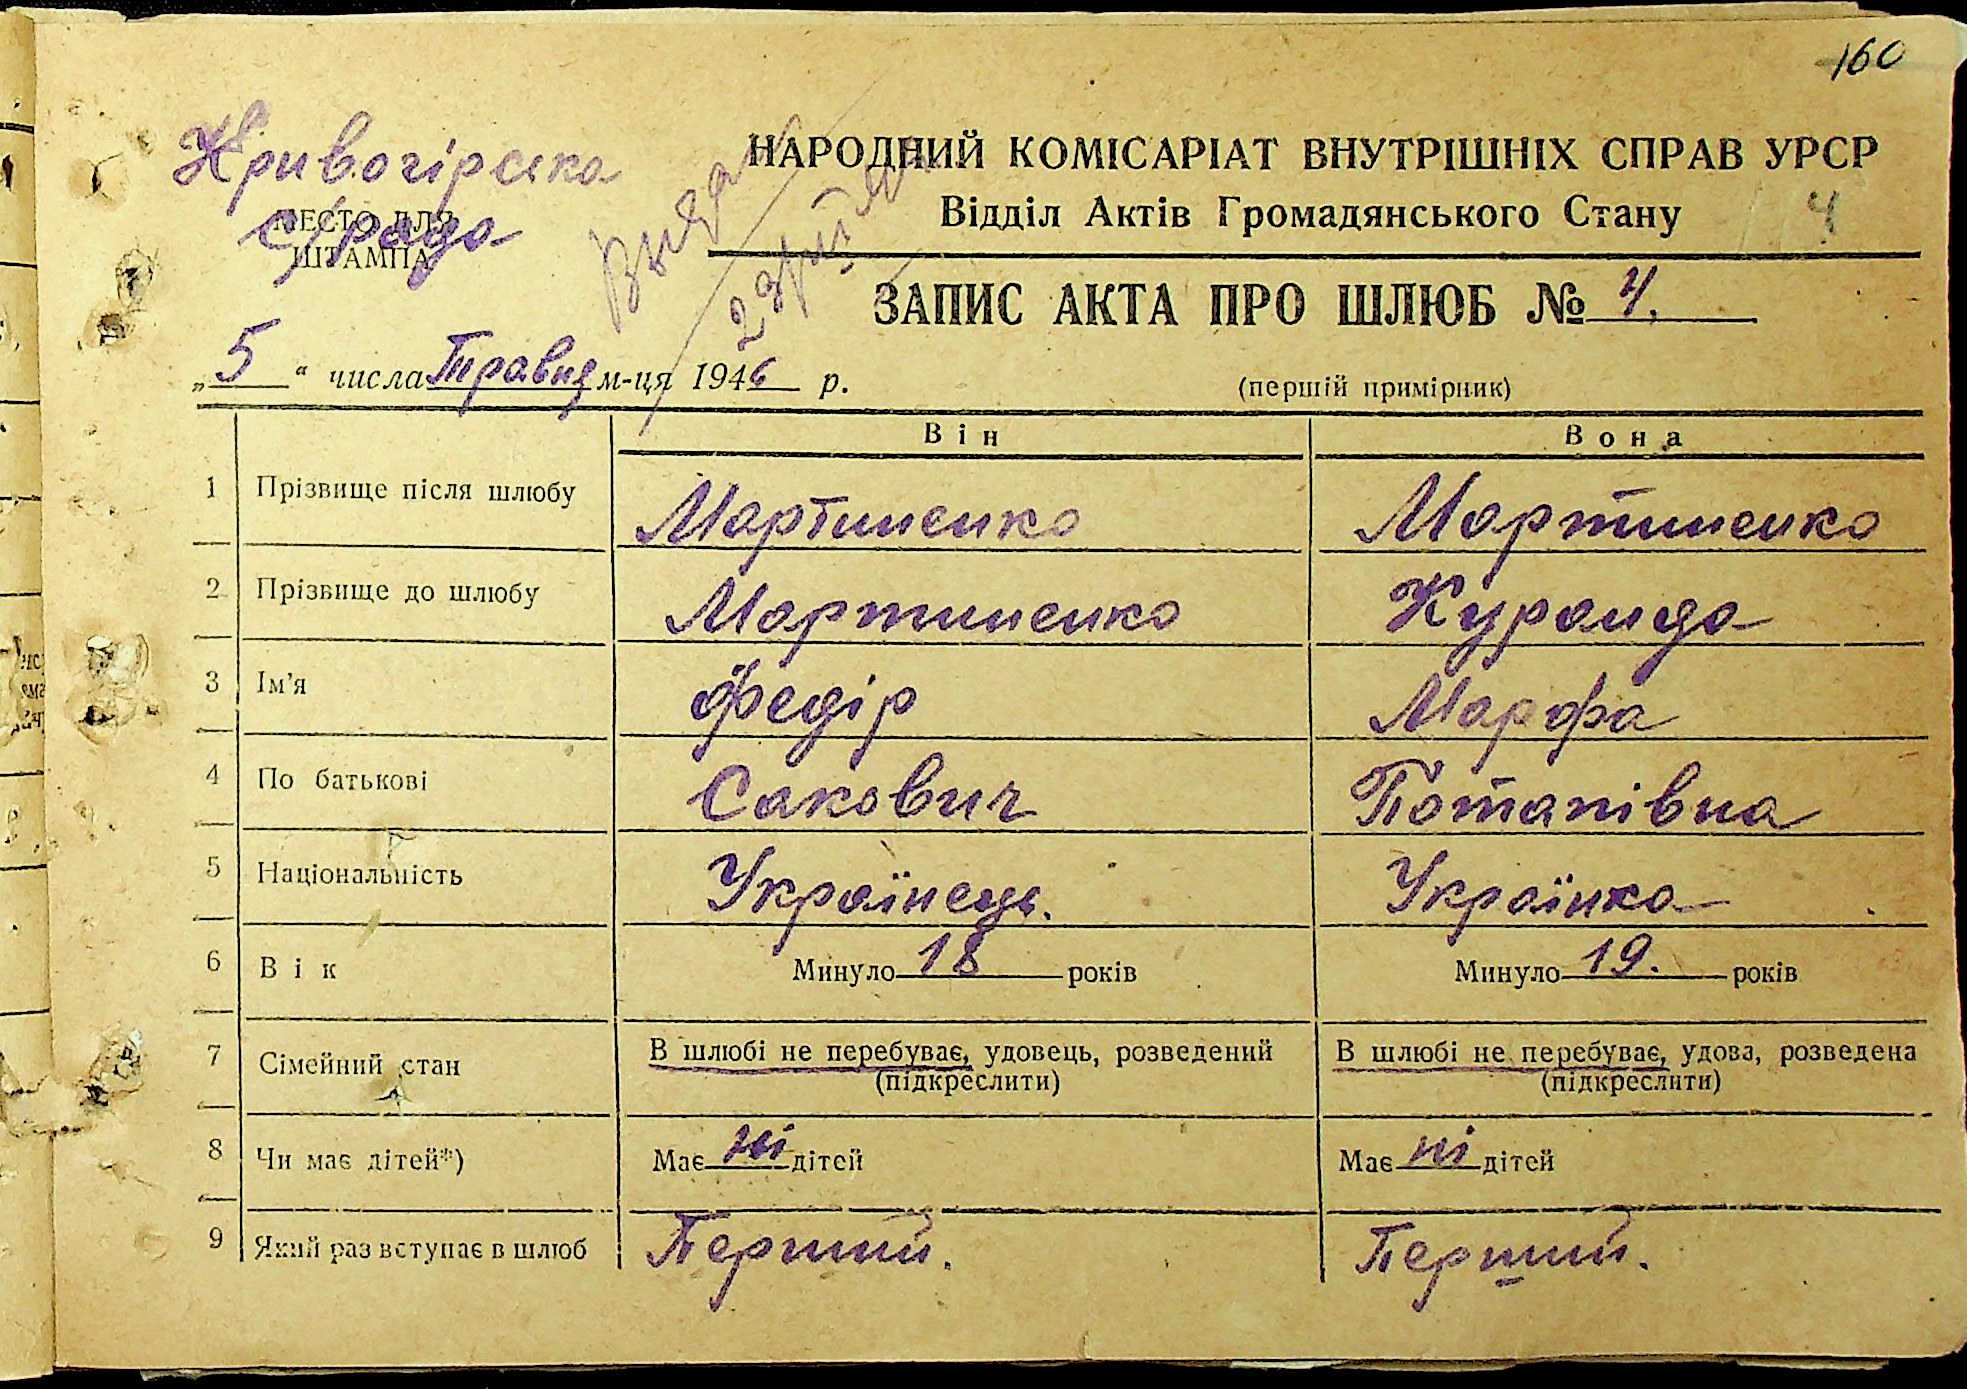 160
Кривогірська
с/рада
МЕСТО ДЛЯ
ШТАМПА
НАРОДНИЙ КОМІСАРІАТ ВНУТРІШНІХ СПРАВ УРСР
Відділ Актів Громадянського Стану
4
ЗАПИС АКТА ПРО ШЛЮБ № 4.
„5“ числа Травня м-ця 1946 р.
(першій примірник)
Він Вона
1 Прізвище після шлюбу Мартиненко Мартиненко
2 Прізвище до шлюбу Мартиненко Куранда
3 Ім'я Федір Марфа
4 По батькові Сакович Потапівна
5 Національність Українець. Українка
6 Вік Минуло 18 років Минуло 19. років
7 Сімейний стан В шлюбі не перебуває, удовець, розведений В шлюбі не перебуває, удова, розведена
(підкреслити) (підкреслити)
8 Чи має дітей*) Має ні дітей Має ні дітей
9 Який раз вступає в шлюб Перший. Перший.